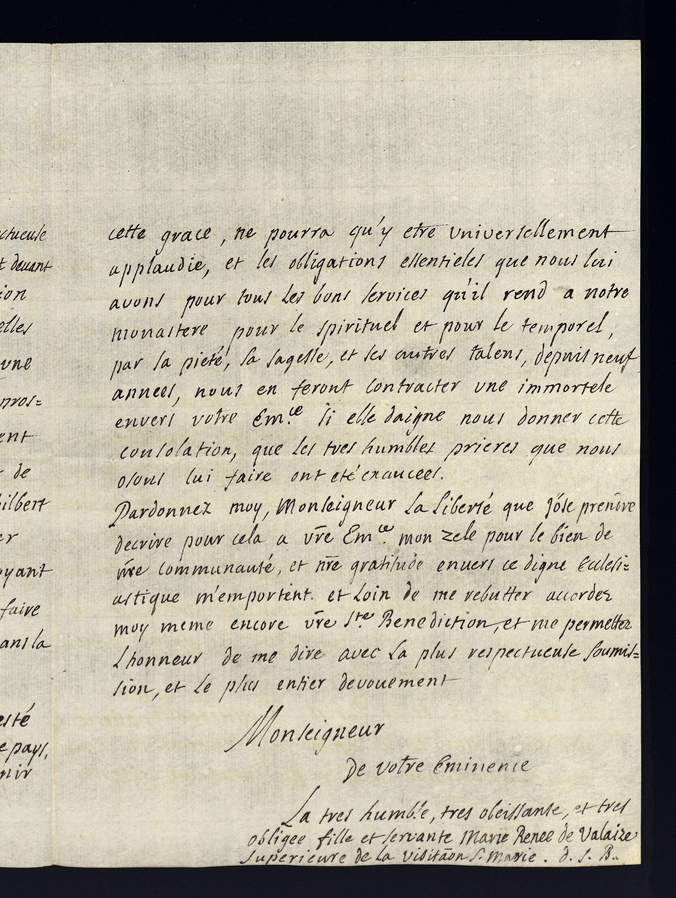 ctueuse
t devant
ion
elles
vne
pros=
ent
de
ilbert
er
oyant
faire
ans la
esté
e pays,
nir
cette grace, ne pourra qu'y etre vniversellement
applaudie, et les obligations essentieles que nous lui
avons pour tous les bons services qu'il rend a notre
monastere pour le spirituel et pour le temporel,
par sa pieté, sa sagesse, et ses autres talens, depuis neuf
annees, nous en feront contracter vne immortele
envers votre Em.ce si elle daigne nous donner cette
consolation, que les tres humbles prieres que nous
osons lui faire ont eté exaucees.
Pardonnez moy, Monseigneur La Liberté que j'ose prendre
decrire pour cela a vr̃e Em.ce mon zele pour le bien de
nr̃e communauté, et nr̃e gratitude envers ce digne Ecclesi=
astique m'emportent. et Loin de me rebutter accordez
moy meme encore vr̃e S.te Benediction, et me permettez
Lhonneur de me dire avec La plus respectueuse soumis=
sion, et Le plus entier devouement
Monseigneur
De votre Eminence
La tres humble, tres obeissante, et tres
obligee fille et servante Marie Renee de Valaize
superieure de la Visitãon S. Marie. d. s. B.